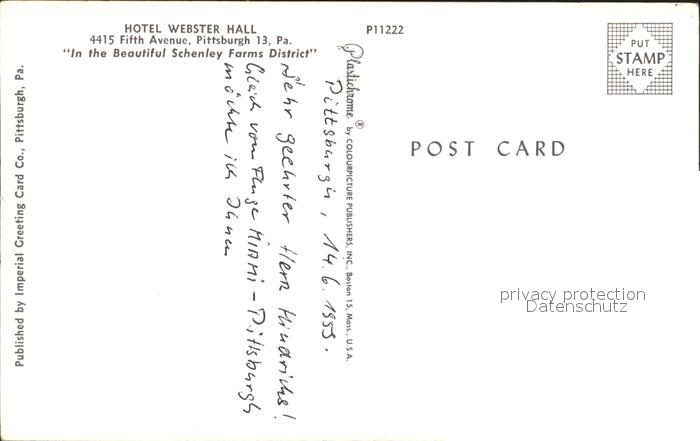 HOTEL WEBSTER HALL
4415 Fifth Avenue, Pittsburgh 13, Pa.
"In the Beautiful Schenley Farms District"
P11222
PUT
STAMP
HERE
POST CARD
Published by Imperial Greeting Card Co., Pittsburgh, Pa.
Plastichrome ® by COLOURPICTURE PUBLISHERS, INC., Boston 15, Mass., U.S.A.
Pittsburgh, 14.6.1959.
Sehr geehrter Herr Hindrichs!
Gleich vom Fluge MIAMI - Pittsburgh
möchte ich Ihnen
privacy protection
Datenschutz